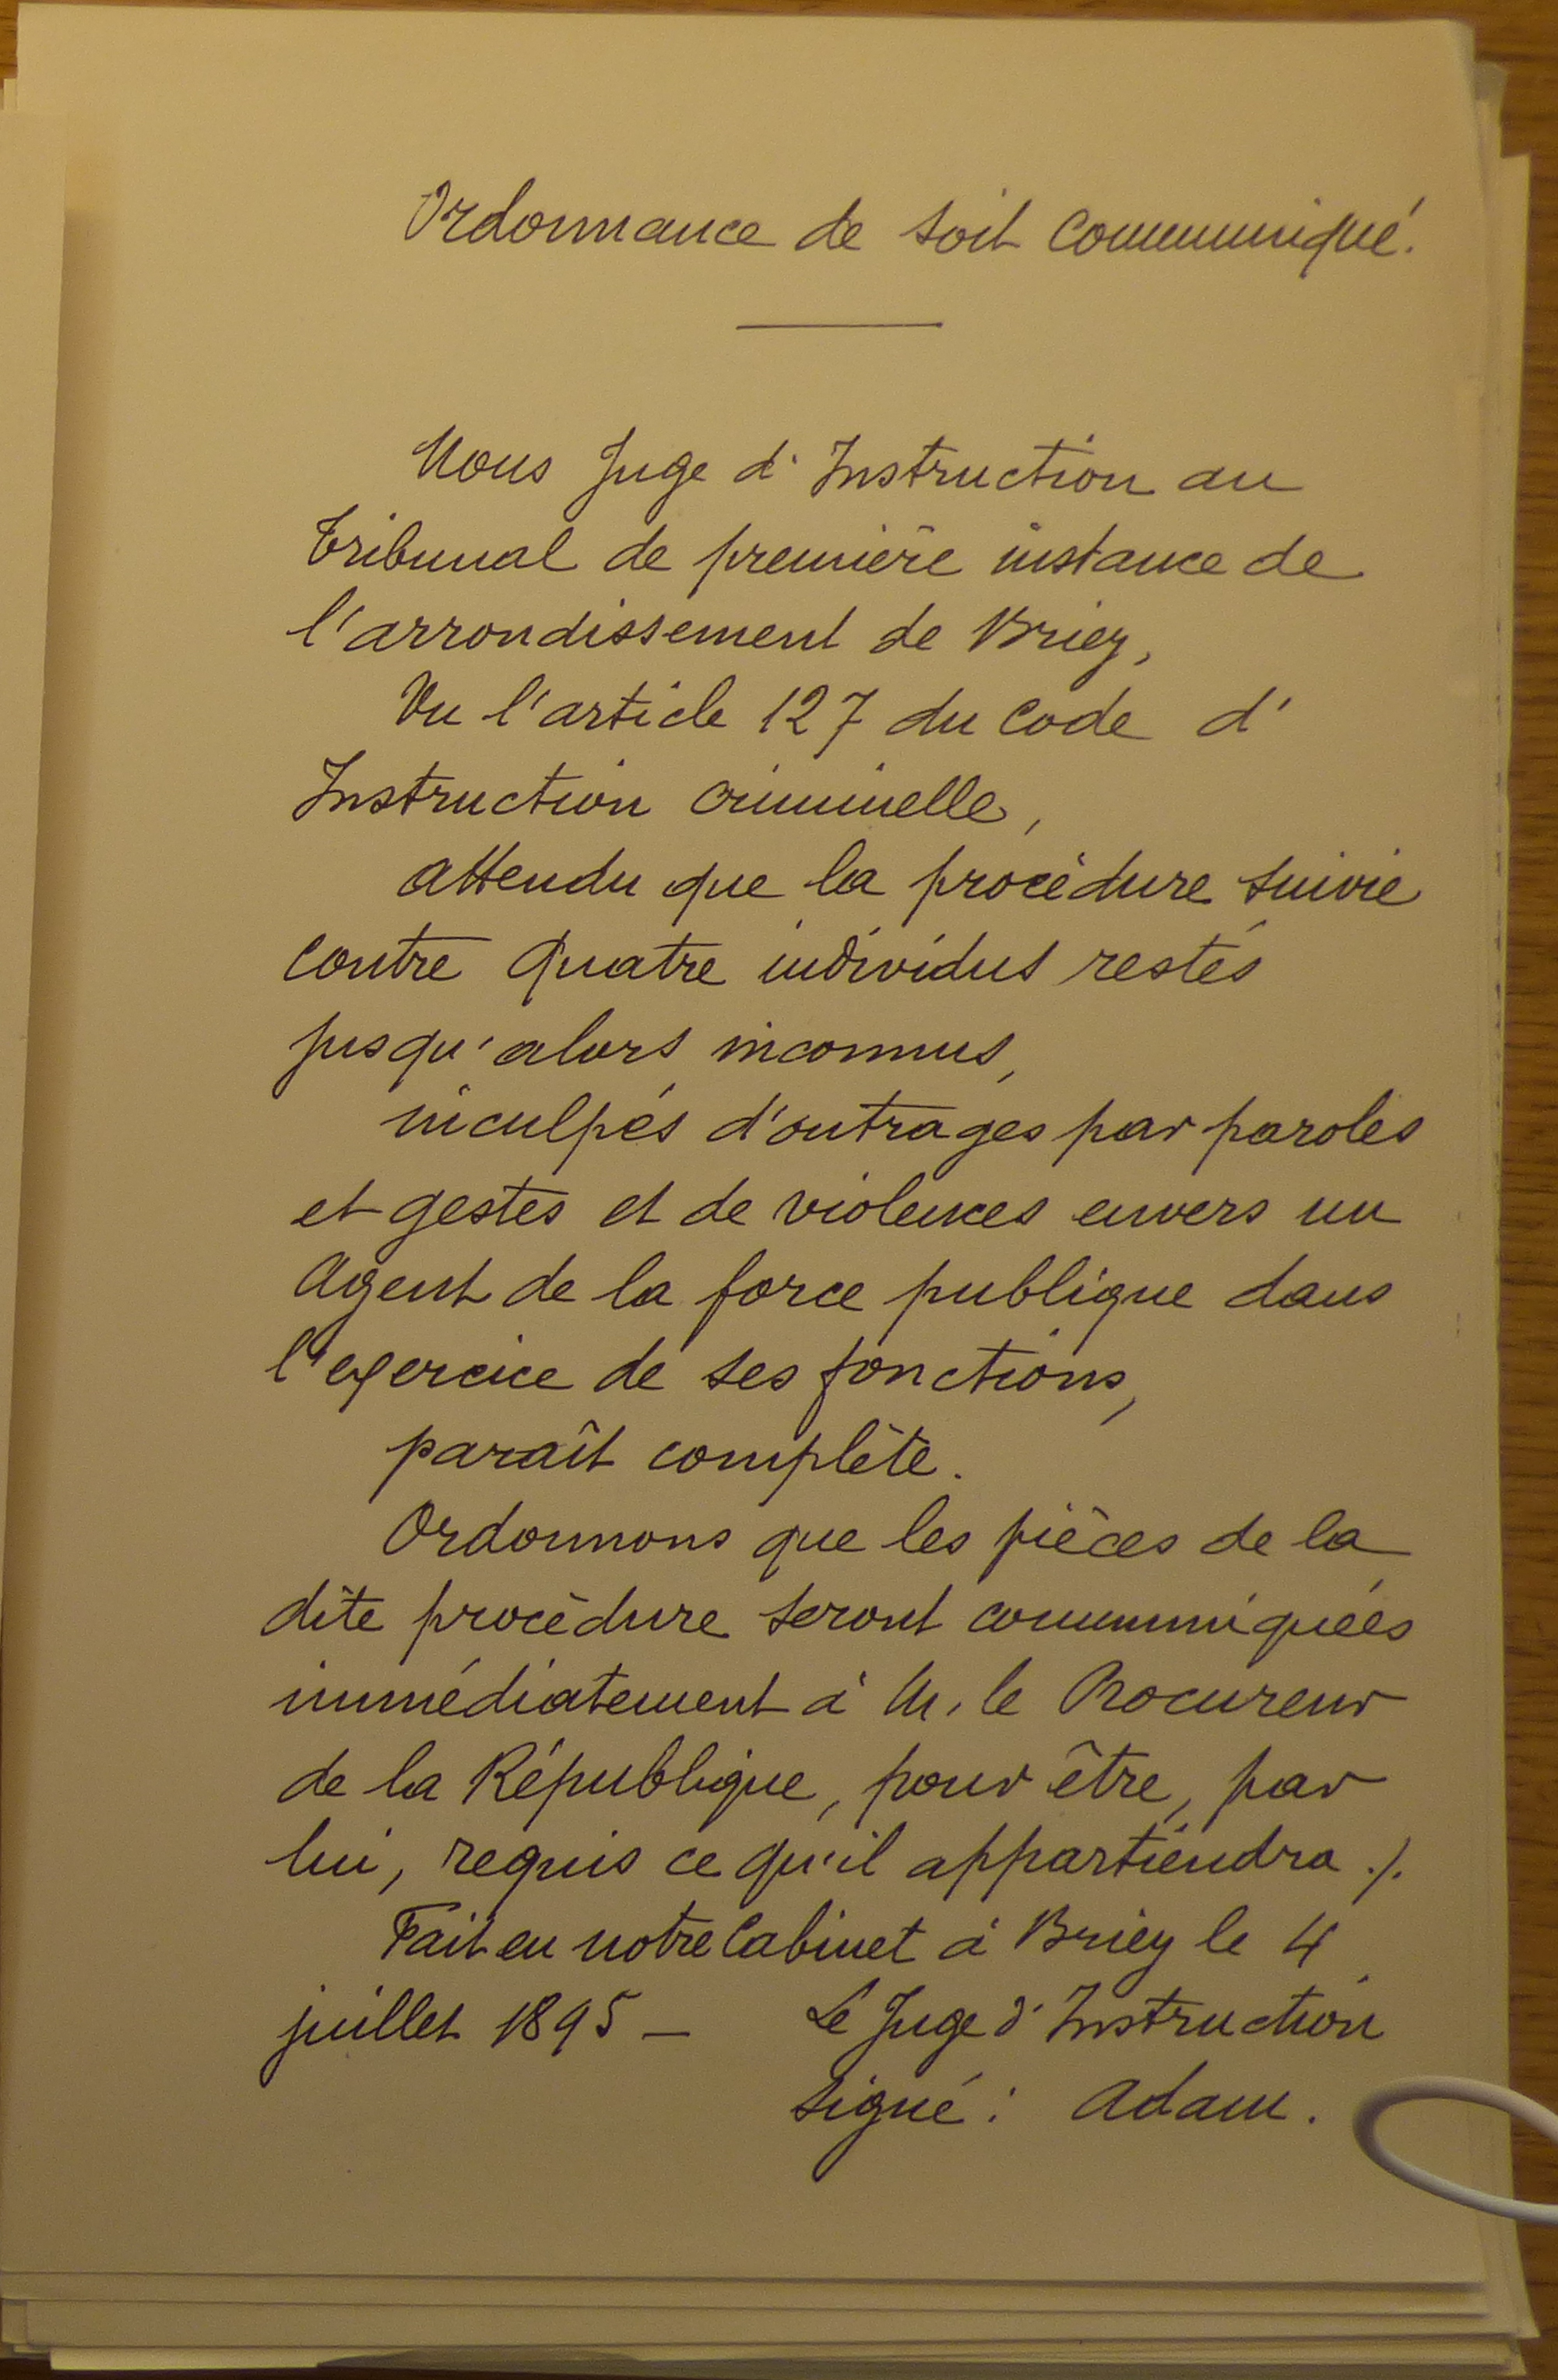 Ordonnance de soit Communiqué.
Nous Juge d'Instruction au
Tribunal de première instance de
l'arrondissement de Briey,
Vu l'article 127 du Code d'
Instruction Criminelle,
attendu que la procédure suivie
contre quatre individus restés
jusqu'alors inconnus,
inculpés d'outrages par paroles
et gestes et de violences envers un
Agent de la force publique dans
l'exercice de ses fonctions,
paraît complète.
Ordonnons que les pièces de la
dite procédure seront communiquées
immédiatement à M. le Procureur
de la République, pour être, par
lui, requis ce qu'il appartiendra ./.
Fait en notre Cabinet à Briey le 4
juillet 1895 — Le Juge d'Instruction
signé : Adam.